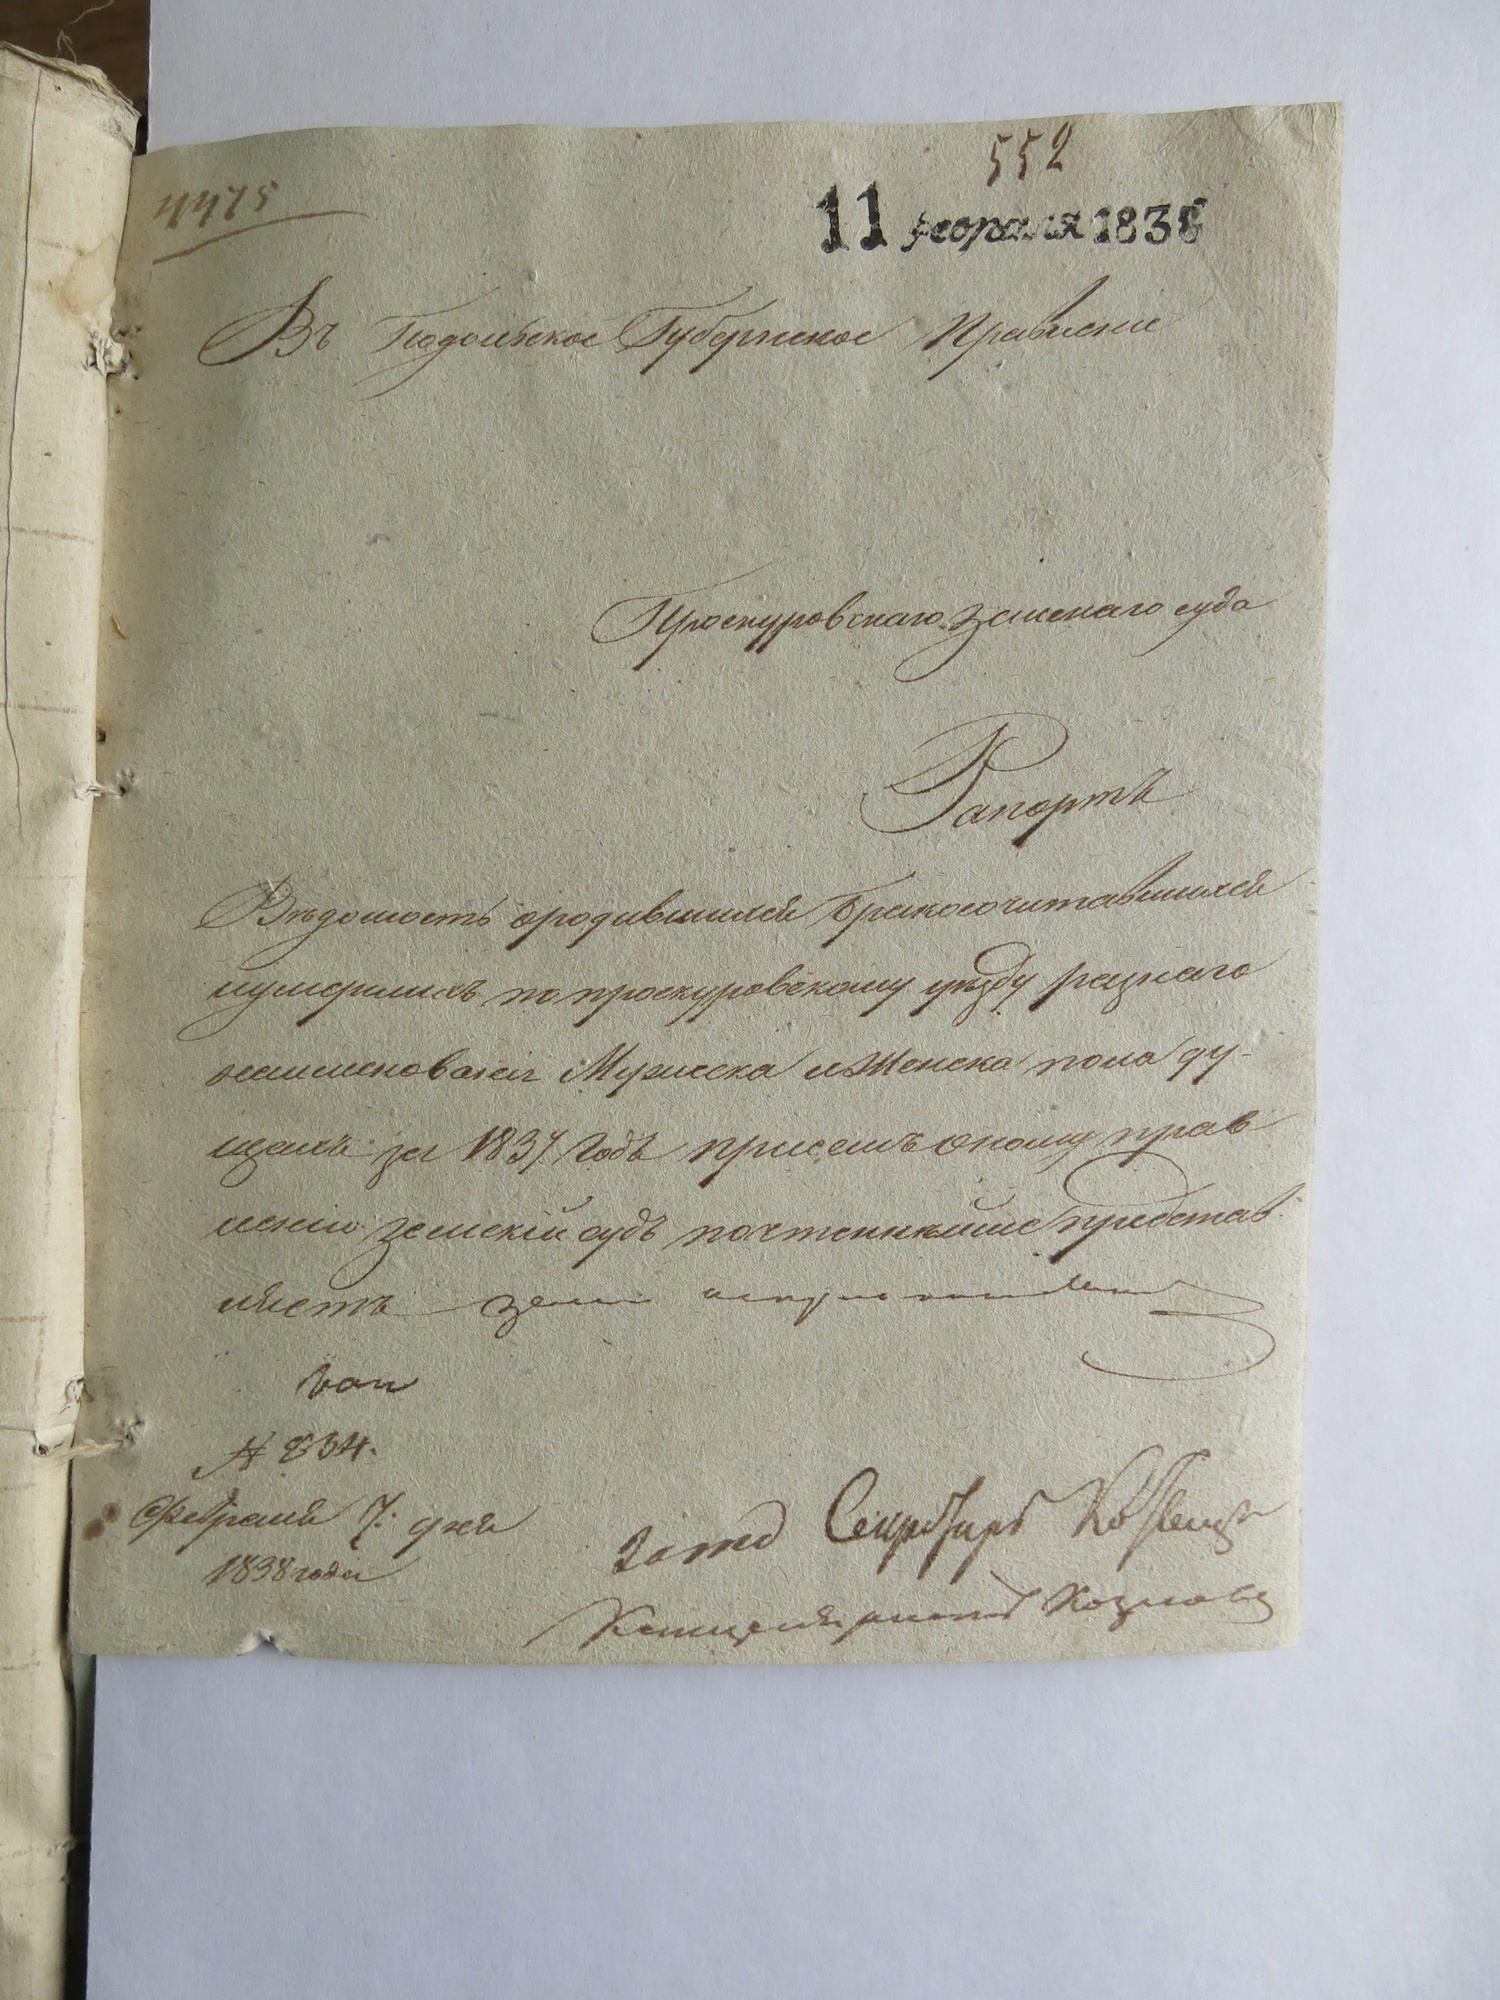 552
4475
11 февраля 1838
Въ Подольское Губернское Правление
Проскуровскаго земскаго суда
Рапортъ
Ведомость ородившихся бракосочитавшихся
иумершихъ попроскуровскому уезду разнаго
наименования Мужеска иженска пола ду-
шахъ за 1837 годъ присемъ оному прав
лению земский судъ почтеннейше представ
ляетъ
№ 834.
Февраля 7: дня
1838 года
Секретарь
Канцеляристъ